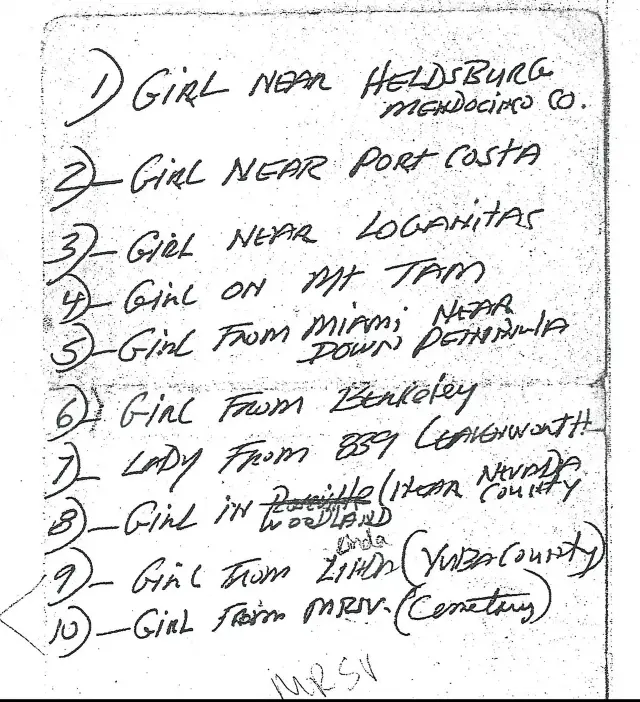 1) GIRL NEAR HELDSBURG
MENDOCINO CO.
2)—GIRL NEAR PORT COSTA
3)—GIRL NEAR LOGANITAS
4)—GIRL ON MT TAM
5)—GIRL FROM MIAMI NEAR
DOWN PENINNULA
6) GIRL FROM BERKELEY
7)— LADY FROM 839 LEAVENWORTH
8)—GIRL IN (NEAR NEVADA
WOODLAND COUNTY
Linda
9)— GIRL FROM LINDA (YUBA COUNTY)
10)—GIRL FROM MRSV. (Cemetary)
MRSV